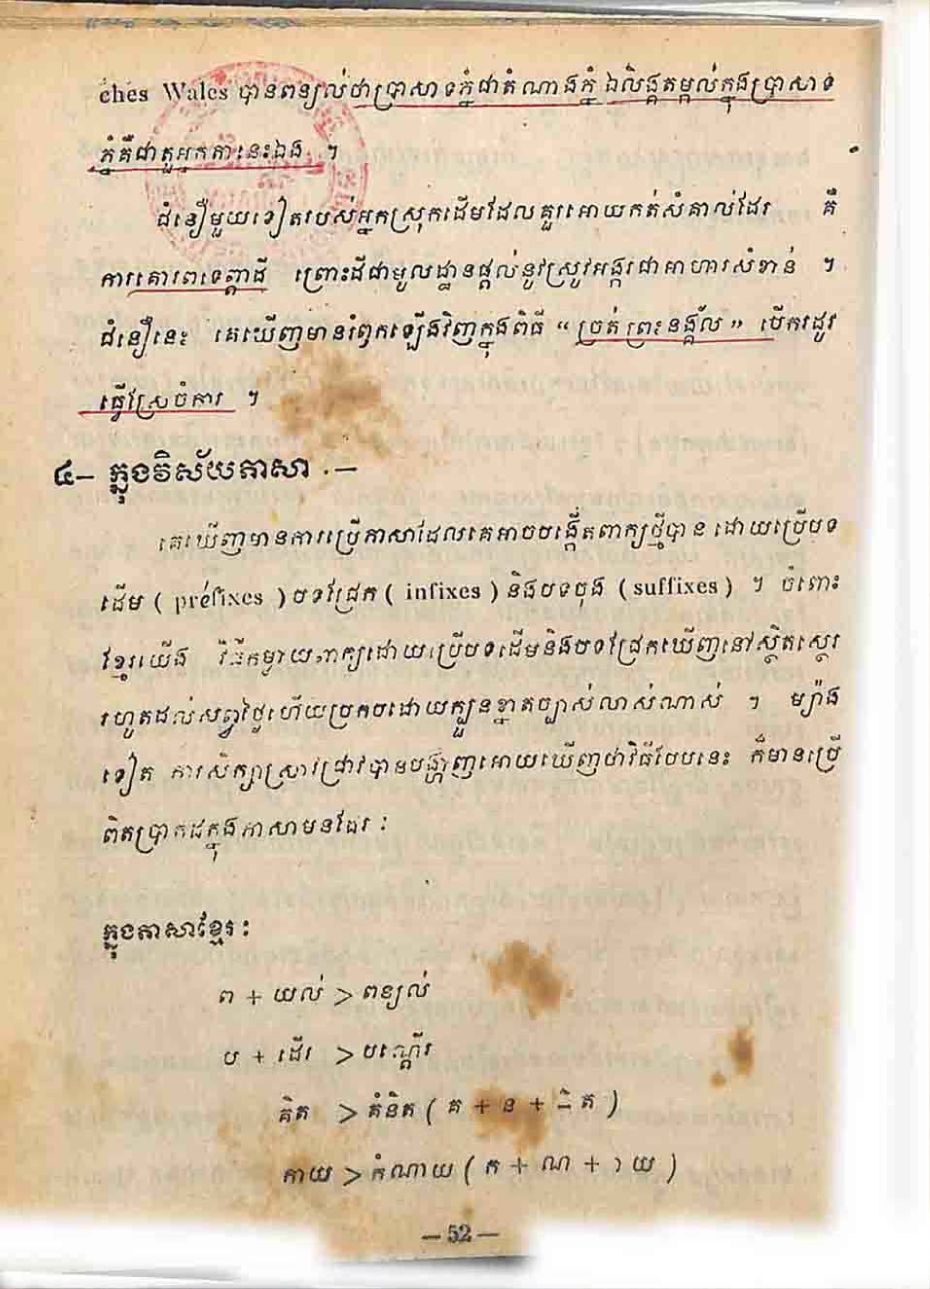 ches Wales បានពន្យល់ថាប្រាសាទភ្នំជាតំណាងភ្នំ ឯលិង្គតម្កល់ក្នុងប្រាសាទ
ភ្នំគឺជាតួអ្នកតានេះឯង ។
ជំនឿមួយទៀតរបស់អ្នកស្រុកដើមដែលគួរអោយកត់សំគាល់ដែរ គឺ
ការគោរពទេព្តាដី ព្រោះដីជាមូលដ្ឋានផ្តល់នូវស្រូវអង្ករជាអាហារសំខាន់ ។
ជំនឿនេះ គេឃើញមានរំឭកឡើងវិញក្នុងពិធី “ ច្រត់ ព្រះនង្គ័ល ” បើករដូវ
ធ្វើស្រែចំការ ។
៤– ក្នុងវិស័យភាសា .–
គេឃើញមានការប្រើភាសាដែលគេអាចបង្កើតពាក្យថ្មីបាន ដោយប្រើបទ
ដើម ( préfixes ) បទជ្រែក ( infixes ) និងបទចុង ( suffixes ) ។ ចំពោះ
ខ្មែរយើង វិធីកម្លាយពាក្យដោយប្រើបទដើមនិងបទជ្រែកឃើញនៅស្ថិតស្ថេរ
រហូតដល់សព្វថ្ងៃហើយប្រកបដោយក្បួនខ្នាតច្បាស់លាស់ណាស់ ។ ម្យ៉ាង
ទៀត ការសិក្សាស្រាវជ្រាវបានបង្ហាញអោយឃើញថាវិធីបែបនេះ ក៏មានប្រើ
ពិតប្រាកដក្នុងភាសាមនដែរ :
ក្នុងភាសាខ្មែរ :
ព + យល់ > ពន្យល់
ប + ដើរ > បណ្តើរ
គិត > គំនិត ( គ + ន + ិត )
កាយ > កំណាយ ( ក + ណ + ាយ )
– 52 –